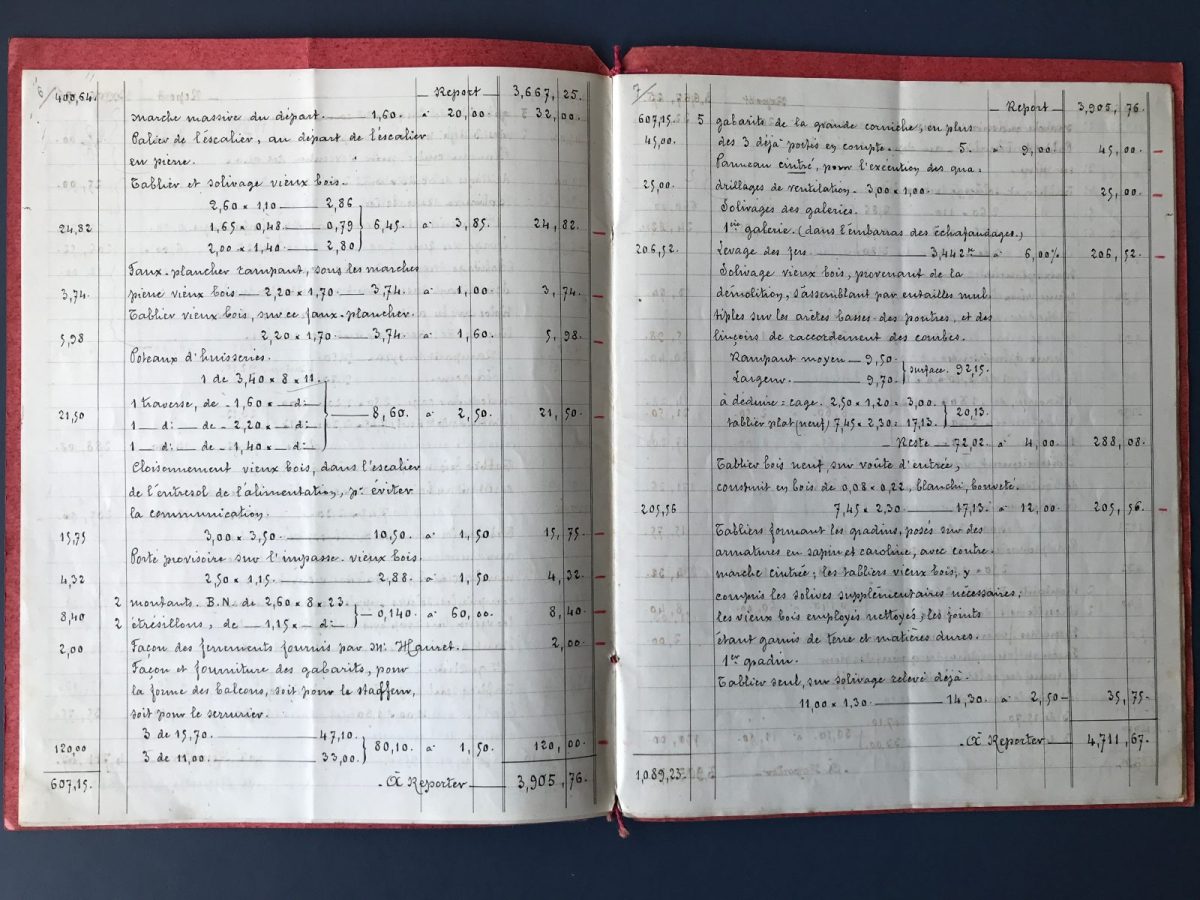 6/ 400,64. — Report — 3,667, 25.
marche massive du départ. — 1,60. à 20,00. 32, 00.
Palier de l'escalier, au départ de l'escalier
en pierre.
Tablier et solivage vieux bois.
2,60 × 1,10 — 2,86
24,82 1,65 × 0,48 — 0,79 } 6,45. à 3,85. 24, 82.
2,00 × 1,40 — 2,80
Faux-plancher rampant, sous les marches
3,74. pierre vieux bois — 2,20 × 1,70 — 3,74. à 1,00. 3, 74.
Tablier vieux bois, sur ce faux-plancher.
5,98 2,20 × 1,70 — 3,74. à 1,60. 5, 98.
Poteaux d'huisseries.
1 de 3,40 × 8 × 11.
21,50 1 traverse, de - 1,60 × — d: — } — 8,60. à 2,50. 21, 50.
1 — d: — de - 2,20 × — d:
1 — d: — de - 1,40 × — d:
Cloisonnement vieux bois, dans l'escalier
de l'entresol de l'alimentation, pr éviter
la communication.
15,75 3,00 × 3,50. — 10,50. à 1,50 15, 75
Porte provisoire sur l'impasse. vieux bois
4,32 2,50 × 1,15. — 2,88. à 1,50 4, 32.
2 montants. B.N. de 2,60 × 8 × 23.
8,40 } — 0,140. à 60,00. 8, 40
2 étrésillons, de — 1,15 × — d:
2,00 Façon des ferrements fournis par Mr — 2, 00.
Façon et fourniture des gabarits, pour
la forme des balcons, soit pour le staffeur,
soit pour le serrurier.
3 de 15,70. — 47,10.
120,00 } 80,10. à 1,50. 120, 00.
3 de 11,00. — 33,00.
607,15. - À Reporter — 3,905, 76.
7/ — Report — 3,905, 76.
607,15. 5 gabarits de la grande corniche, en plus
45,00. des 3 déjà portés en compte. — 5. à 9,00. 45, 00.
Panneau cintré, pour l'exécution des qua=
25,00. drillages de ventilation - 3,00 × 1,00. 25, 00.
Solivages des galeries.
1ère galerie. (dans l'embarras des échafaudages.)
206,52. Levage des fers — 3,442 — à 6,00% 206, 52.
Solivage vieux bois, provenant de la
démolition, s'assemblant par entailles mul-
tiples sur les arêtes basses des poutres, et des
linçoirs de raccordement des courbes.
Rampant moyen — 9,50.
} surface. 92,15.
Largeur. — 9,70.
à déduire = cage. 2,50 × 1,20 = 3,00.
} 20,13.
tablier plat (neuf) 7,45 × 2,30 = 17,13.
- Reste - 72,02. à 4,00. 288, 08.
Tablier bois neuf, sur voûte d'entrée,
construit en bois de 0,08 × 0,22, blanchi, bouveté.
205,56 7,45 × 2,30 — 17,13. à 12,00. 205, 56.
Tabliers formant les gradins, posés sur des
armatures en sapin et caroline, avec contre-
marche cintrée; les tabliers vieux bois, y
compris les solives supplémentaires nécessaires;
les vieux bois employés nettoyés; les joints
étant garnis de terre et matières dures.
1er gradin.
Tablier seul, sur solivage relevé déjà.
11,00 × 1,30. — 14,30. à 2,50 - 35, 75.
1,089,23. - À Reporter — 4,711, 67.